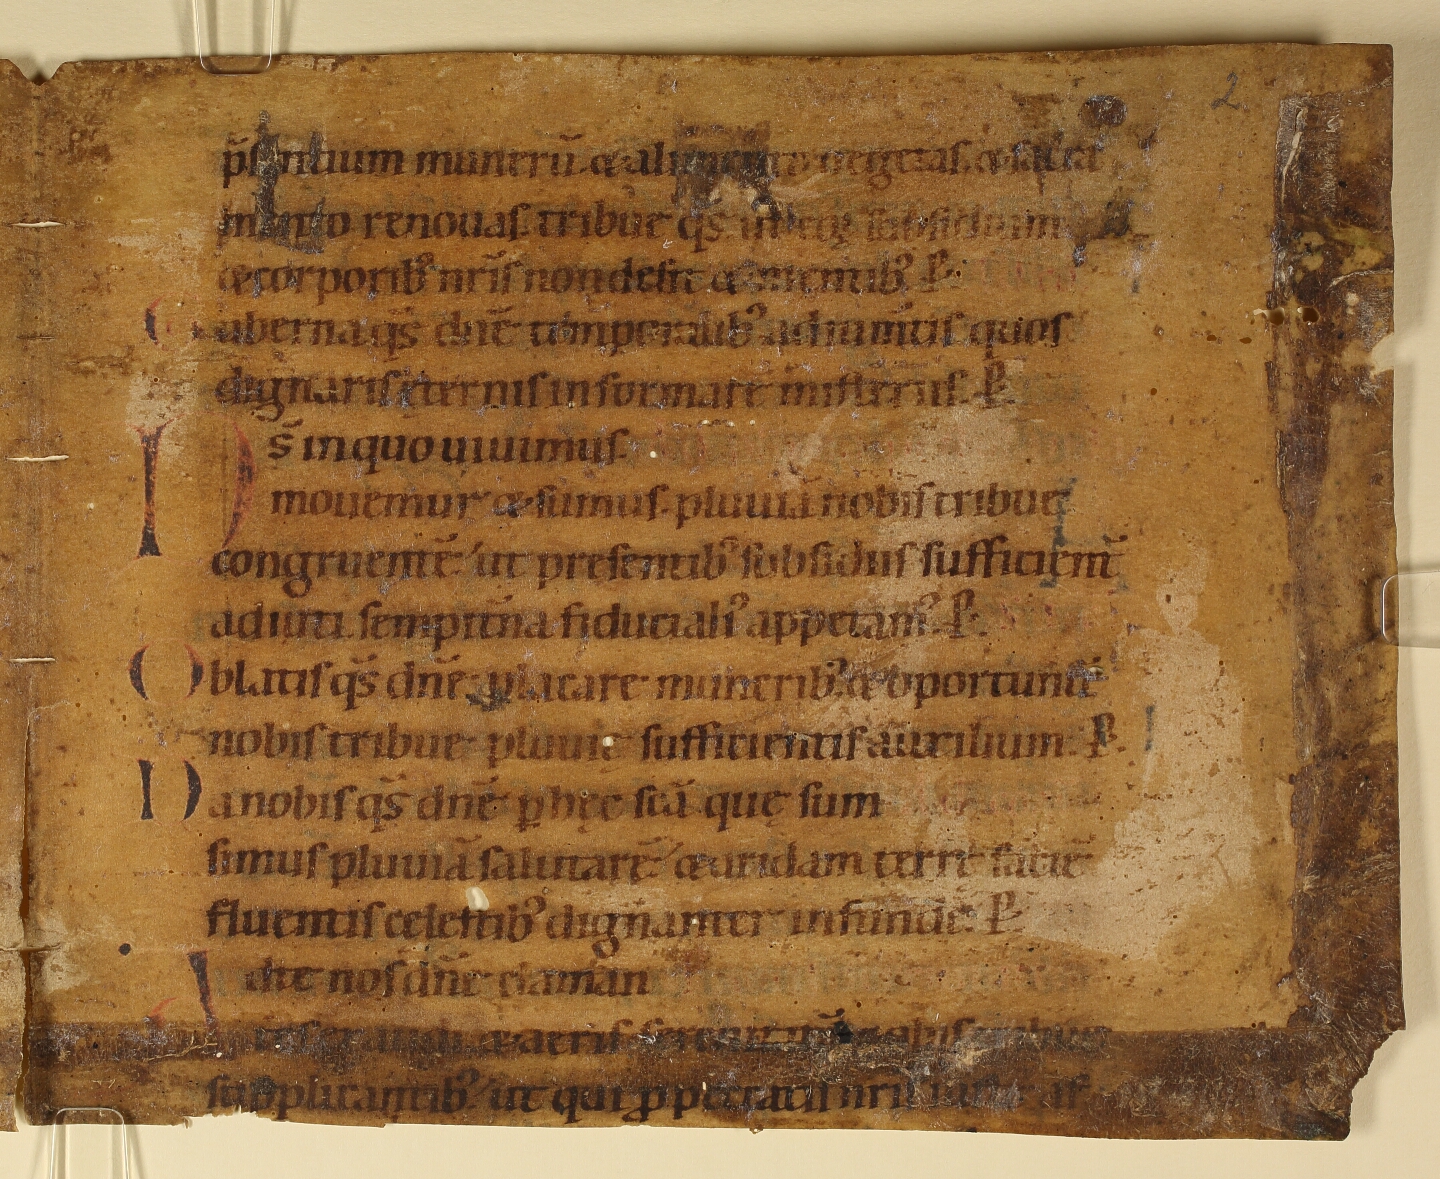 2
p̄sentium munerū. & alimento uegetas. & sacra
mento renouas. tribue qs̄ ut eoꝝ subsidium
& corporib; nr̄is non desit & mentib;. P̱.
ubernaqs̄ dn̄e temporalib; adium̄tis quos
dignaris ęternis informare misteriis. P̱.
Ds̄ in quo uiuimus.
mouemur & sumus. pluuiā nobis tribue
congruentē. ut presentib; subsidiis sufficient̄
adiuti. sempit̄na fiducialiꝰ appetamꝰ. P̱.
Oblatis qs̄ dn̄e placare munerib;. & oportunū
nobis tribue pluuie sufficientis auxilium. P̱.
Da nobis qs̄ dn̄e ꝑ hęc sc̄ā que sum
simus pluuiā salutarē. & aridam terrę faciē
fluentis celestib; dignanter infunde. P̱.
A dte nos dn̄e claman
tes exaudi. & aeris serenit̄tē nobis tribue
supplicantib;. ut qui ꝓ peccatis nr̄is iuste af